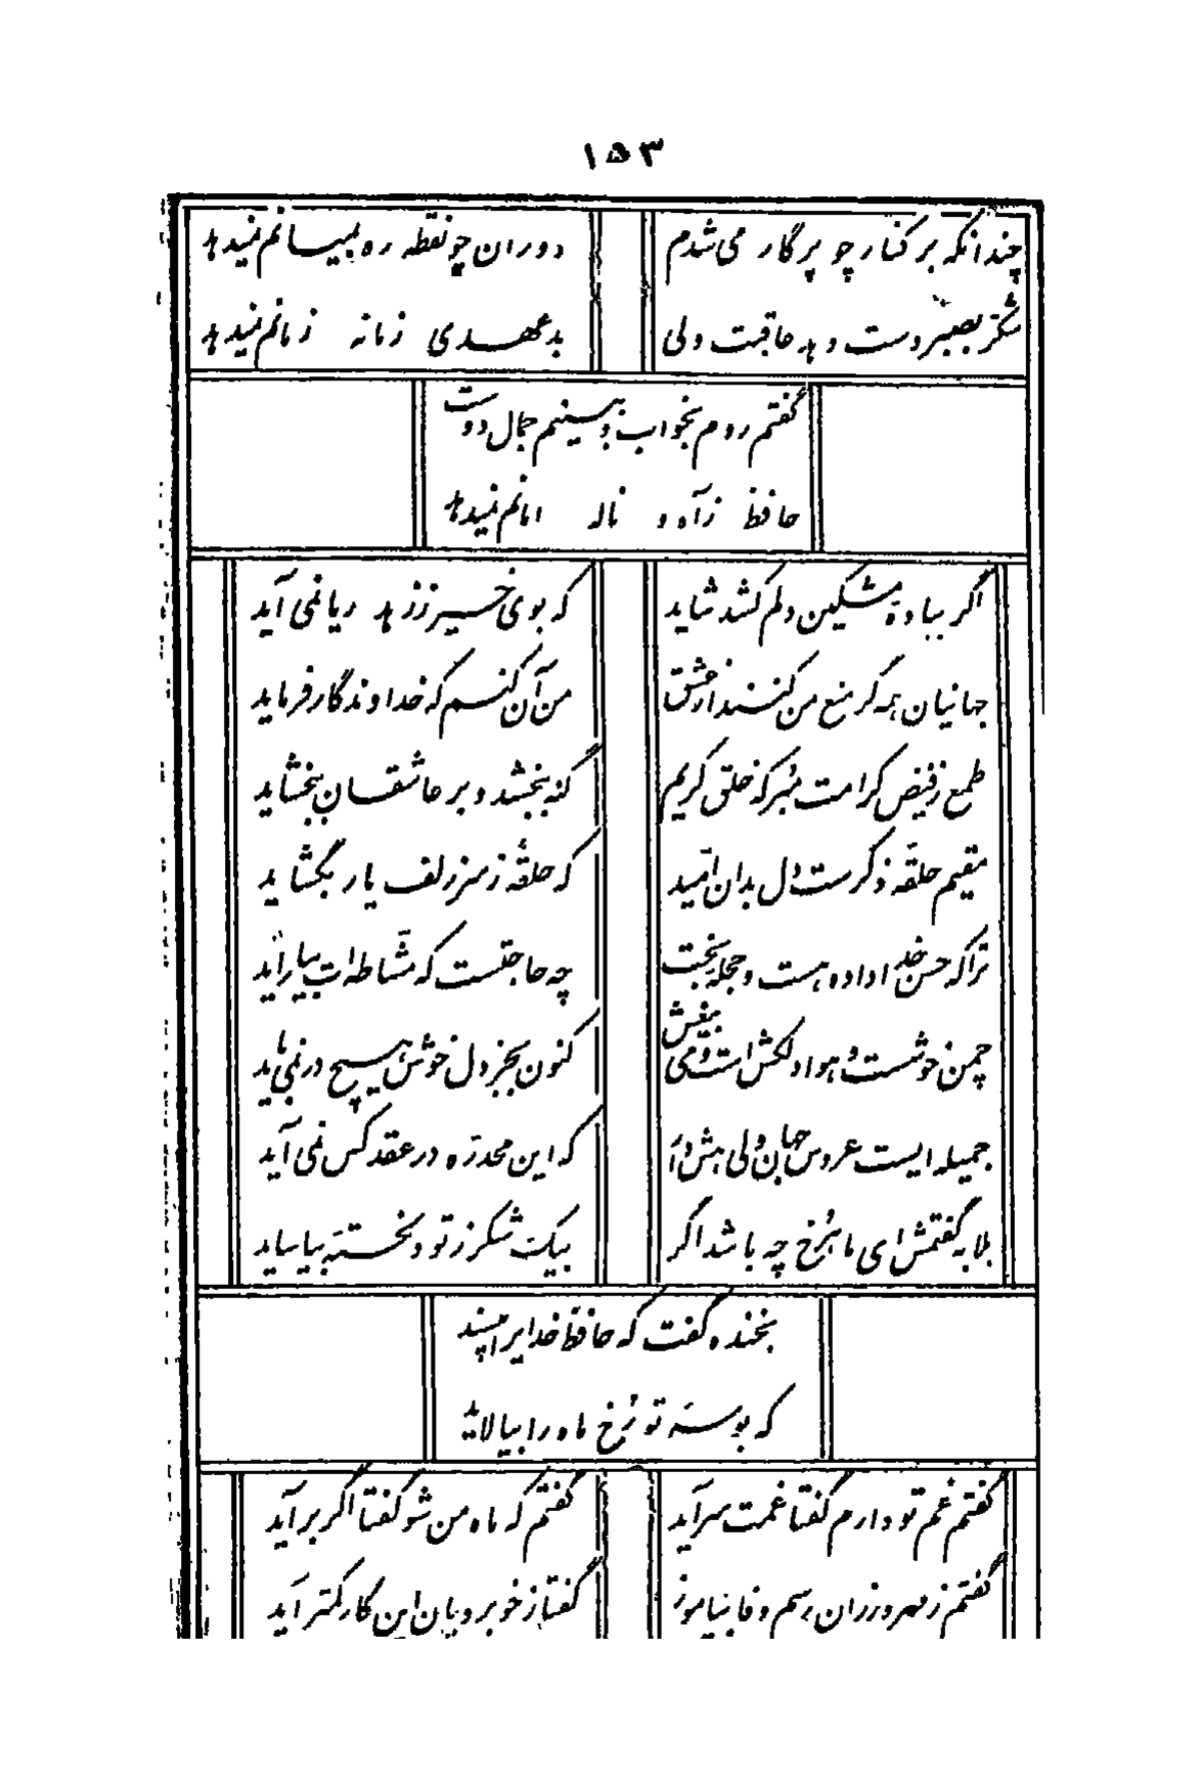 ۱۵۳
چندانکه بر کنار چو پرگار می شدم
دوران چو نقطه ره بمیانم نمیدهد
شکر بصبر دست دهد عاقبت ولی
بدعهدی زمانه زمانم نمیدهد
گفتم روم بخواب و ببینم جمال دوست
حافظ ز آه و ناله امانم نمیدهد
اگر بباده مشکین دلم کشد شاید
که بوی خیر ز زهد ریا نمی آید
جهانیان همه گر منع من کنند از عشق
من آن کنم که خداوندگار فرماید
طمع ز فیض کرامت مبر که خلق کریم
گنه ببخشد و بر عاشقان ببخشاید
مقیم حلقه ذکرست دل بدان امید
که حلقهٔ ز سر زلف یار بگشاید
ترا که حسن خداداده هست و حجله بخت
چه حاجتست که مشاطه ات بیاراید
چمن خوشست و هوا دلکش است و می بیغش
کنون بجز دل خوش هیچ در نمی باید
جمیله ایست عروس جهان ولی هش دار
که این مخدره در عقد کس نمی آید
بلابه گفتمش ای ماهرخ چه باشد اگر
بیک شکر ز تو دلخسته بیاساید
بخنده گفت که حافظ خدایرا مپسند
که بوسه تو رخ ماه را بیالاید
گفتم غم تو دارم گفتا غمت سرآید
گفتم که ماه من شو گفتا اگر برآید
گفتم ز مهرورزان رسم وفا بیاموز
گفتا ز خوبرویان این کار کمتر آید